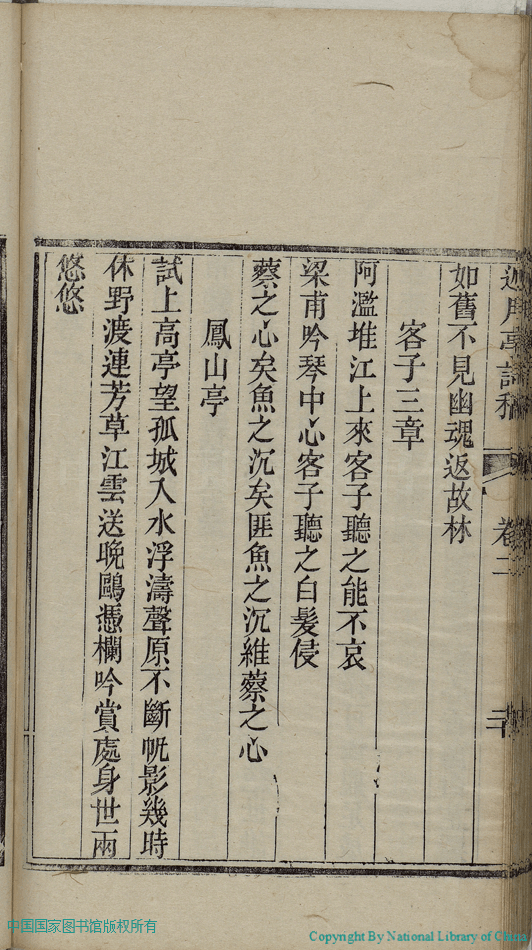 如舊不見幽魂返故林
客子三章
阿濫堆江上來客子聽之能不哀
梁甫吟琴中心客子聽之白髮侵
蔡之心矣魚之沉矣匪魚之沉維蔡之心
鳳山亭
試上高亭望孤城入水浮濤聲原不斷帆影幾時
休野渡連芳草江雲送晚鷗憑欄吟賞處身世兩
悠悠
卷二
中国国家图书馆版权所有
Copyright By National Library of China